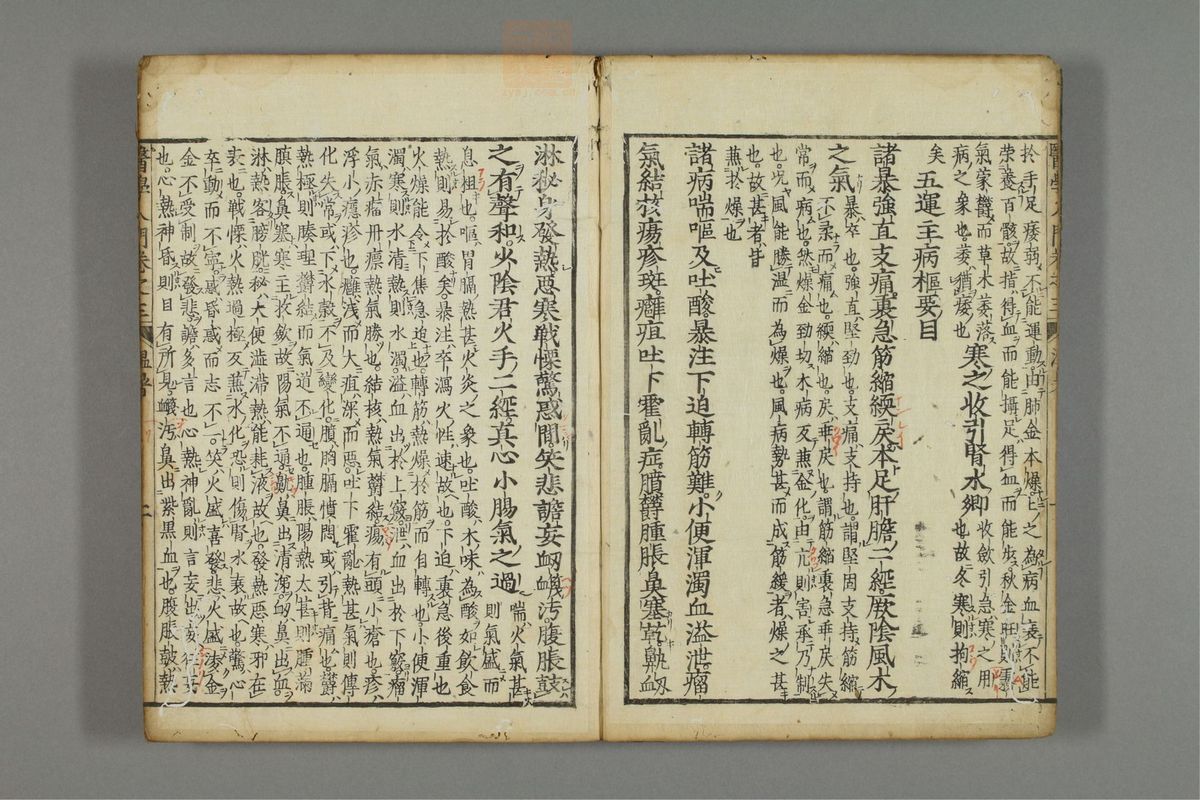 於手足痿弱不能運動由肺金本燥燥之為病血衰不能
榮養百骸故指得血而能攝足得血而能步秋金旺則
氣蒙欝而草木萎落
病之象也萎猶痿也
寒之收引腎水郷
收斂引急寒之用
也故冬寒則拘縮
矣
五運主病樞要目
諸暴強直支痛裏急筋縮緛戾本足肝膽二經厥陰風木
之氣
暴卒也強直堅勁也支痛支持也謂堅固支持筋縮
不柔而痛也緛縮也戾乖戾也謂筋縮裏急乖戾失
常而病也然燥金勁切木病反兼金化由亢則害承乃制
也况風能勝湿而為燥也風病勢甚而成筋緩者燥之甚
也故甚者皆
兼於燥也
諸病喘嘔及吐酸暴注下迫轉筋難小便渾濁血溢泄瘤
氣結核瘍疹斑癰疽吐下霍亂症瞀欝腫脹鼻塞鼽衂
淋秘身發熱惡寒戰慄驚惑間笑悲譫妄衂衊汚腹脹鼓
之有聲和少陰君火手二經真心小腸氣之過
喘火氣甚
則氣盛而
息粗也嘔胃膈熱甚火炎之象也吐酸木味為酸如飲食
熱則易於酸矣暴注卒瀉火性速故也下迫裏急後重也
火燥能令下焦急迫也轉筋熱燥於筋而自轉也小便渾
濁寒則水清熱則水濁溢血出於上竅泄血出於下竅瘤
氣赤瘤丹熛熱氣勝也結核熱氣欝結瘍有頭小瘡也疹
浮小癮疹也癰浅而大疽深而惡吐下霍亂熱甚氣則傳
化失常或下水穀不及變化瞀胸膈憤悶或引背痛也欝
熱極則腠理欝結而氣道不通也腫脹陽熱太甚則腫滿
䐜脹鼻塞寒主於斂故陽氣不通鼽鼻出清濁衂鼻出血
淋熱客膀胱秘大便澁滞熱能耗液故也發熱惡寒邪在
表也戰慄火熱過極反兼水化恐則傷腎水衰故也驚心
卒動而不寧惑昏惑而志不一笑火盛喜發悲火盛凌金
金不受制故發悲譫多言也心熱神亂則言妄出
也心熱神昏則目有所見衊汚鼻出紫黒血也腹脹鼓熱
醫學入門卷之三
温暑
二